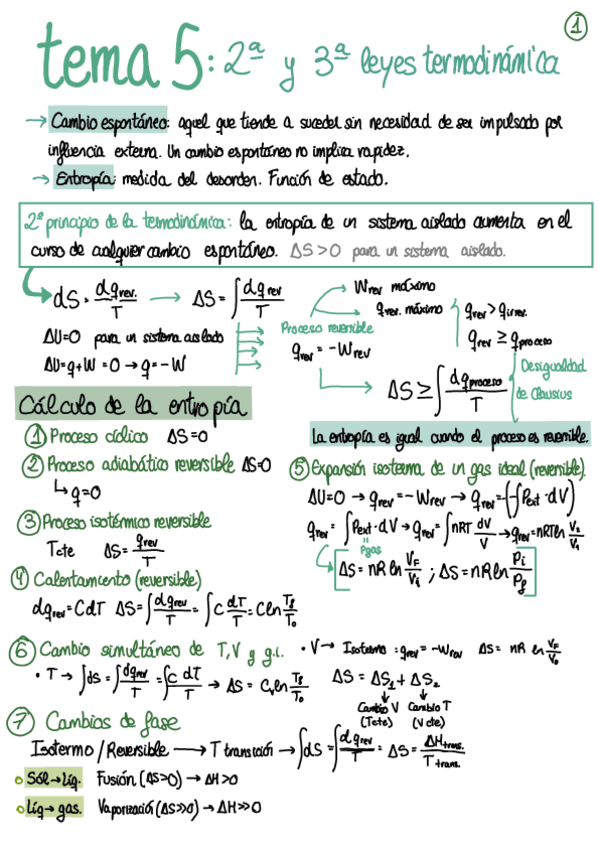 1
tema 5: 2ª y 3ª leyes termodinámica
→ Cambio espontáneo: aquel que tiende a suceder sin necesidad de ser impulsado por
influencia externa. Un cambio espontáneo no implica rapidez.
→ Entropía: medida del desorden. Función de estado.
2º principio de la termodinámica: la entropía de un sistema aislado aumenta en el
curso de cualquier cambio espontáneo. ΔS>0 para un sistema aislado.
dS = dqrev./T → ΔS = ∫ dqrev/T
Wrev máximo
qrev. máximo
qrev > qirrev.
qrev ≥ qproceso
ΔU=0 para un sistema aislado
ΔU=q+W=0 → q=-W
Proceso reversible
qrev = -Wrev
ΔS ≥ ∫ dqproceso/T
Desigualdad
de Clausius
Cálculo de la entropía
La entropía es igual cuando el proceso es reversible.
1 Proceso cíclico ΔS=0
2 Proceso adiabático reversible ΔS=0
↳ q=0
3 Proceso isotérmico reversible
Tcte ΔS = qrev/T
4 Calentamiento (reversible)
dqrev = CdT ΔS = ∫ dqrev/T = ∫ C dT/T = C ln Tf/To
5 Expansión isoterma de un gas ideal (reversible).
ΔU=0 → qrev = -Wrev → qrev = (-∫Pext·dV)
qrev = ∫Pext·dV → qrev = ∫nRT dV/V → qrev = nRT ln V2/V1
Pgas
ΔS = nR ln VF/Vi ; ΔS = nR ln Pi/Pf
6 Cambio simultáneo de T,V y g.i. • V → Isotermo : qrev = -Wrev ΔS = nR ln VF/Vo
• T → ∫dS = ∫ dqrev/T = ∫ C dT/T → ΔS = Cv ln Tf/To
ΔS = ΔS1 + ΔS2
Cambio V Cambio T
(Tcte) (V cte)
7 Cambios de fase
Isotermo / Reversible → T transición → ∫dS = ∫ dqrev/T = ΔS = ΔHtrans./Ttrans.
Sól → líq. Fusión (ΔS>0) → ΔH>0
Líq → gas. Vaporización (ΔS>>0) → ΔH>>0